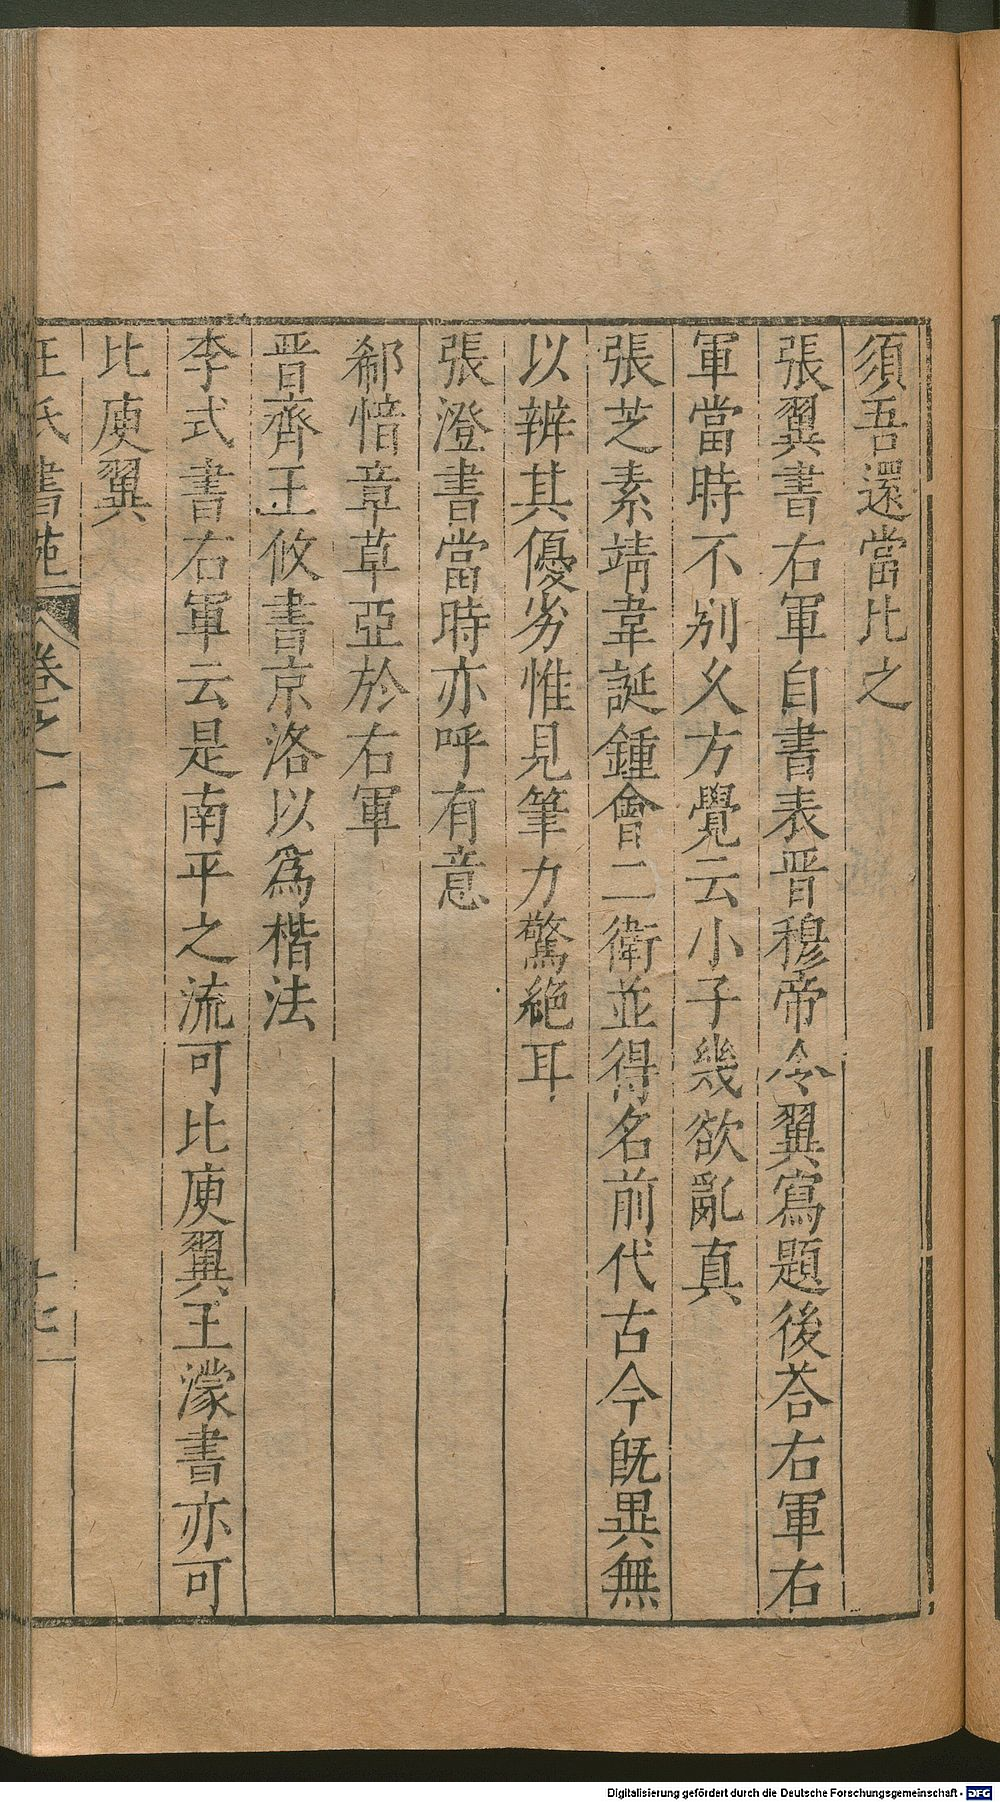 須吾還當比之
張翼書右軍自書表晋穆帝令翼寫題後荅右軍右
軍當時不别乆方覺云小子幾欲亂真
張芝素靖韋誕鍾會二衛並得名前代古今既異無
以辨其優劣惟見筆力驚絶耳
張澄書當時亦呼有意
郗愔章草亞於右軍
晋齊王攸書京洛以為楷法
李式書右軍云是南平之流可比庾翼王濛書亦可
比庾翼
王氏書苑 卷之一 十七
Digitalisierung gefördert durch die Deutsche Forschungsgemeinschaft - DFG